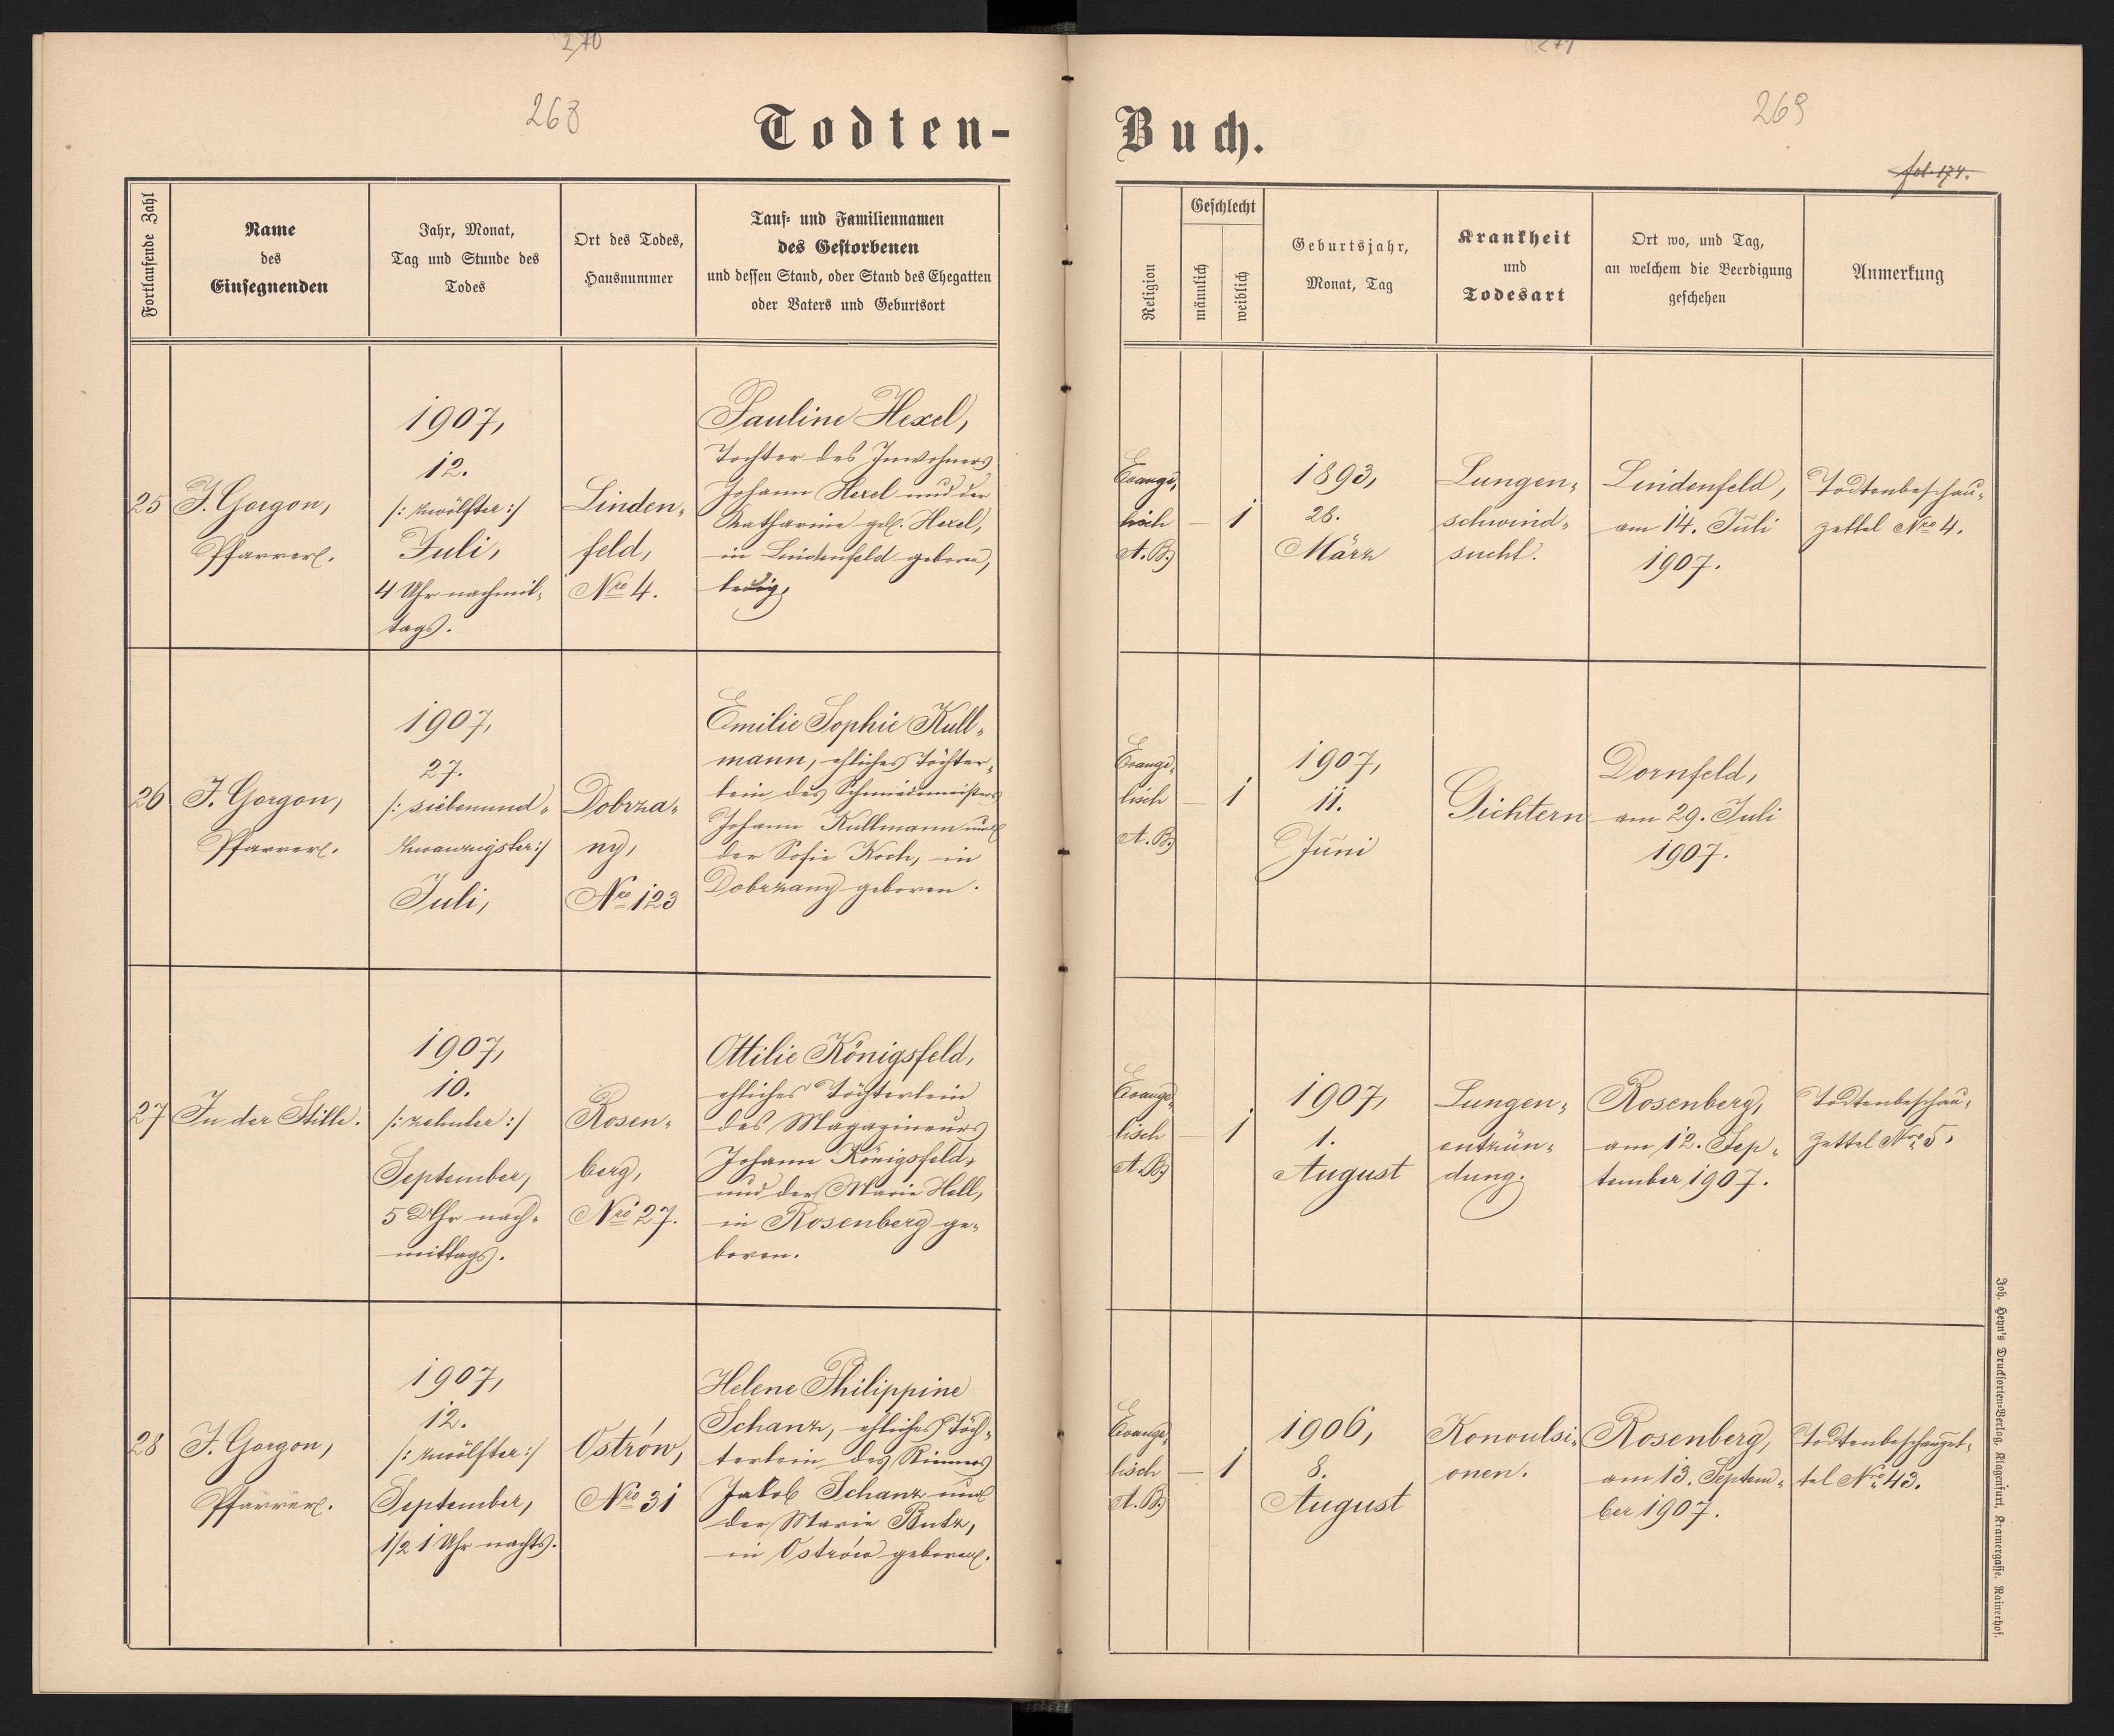 270
271
268
269
Todten-
Buch.
fol. 174.
Fortlaufende Zahl
Name
des
Einsegnenden
Jahr, Monat,
Tag und Stunde des
Todes
Ort des Todes,
Hausnummer
Tauf- und Familiennamen
des Gestorbenen
und dessen Stand, oder Stand des Ehegatten
oder Vaters und Geburtsort
Religion
Geschlecht
männlich
weiblich
Geburtsjahr,
Monat, Tag
Krankheit
und
Todesart
Ort wo, und Tag,
an welchem die Beerdigung
geschehen
Anmerkung
25
J. Gorgon,
Pfarrer.
1907,
12.
/: zwölfter :/
Juli,
4 Uhr nachmit-
tags.
Linden-
feld,
Nro 4.
Pauline Hexel,
Tochter des Inwohners
Johann Hexel und der
Katharine geb. Hexel,
in Lindenfeld geboren,
ledig,
Evange-
lisch
A. B.
—
1
1893,
28.
März
Lungen-
schwind-
sucht.
Lindenfeld,
am 14. Juli
1907.
Todtenbeschau-
zettel Nro 4.
26
J. Gorgon,
Pfarrer.
1907,
27.
/: siebenund-
zwanzigster :/
Juli,
Dobrza-
ny,
Nro 123
Emilie Sophie Kull-
mann, ehliches Töchter-
lein des Schmiedemeisters
Johann Kullmann und
der Sofie Koch, in
Dobrzany geboren.
Evange-
lisch
A. B.
—
1
1907,
11.
Juni
Gichtern
Dornfeld,
am 29. Juli
1907.
27
In der Stille.
1907,
10.
/: zehnter :/
September,
5 Uhr nach-
mittags.
Rosen-
berg,
Nro 27.
Ottilie Königsfeld,
ehliches Töchterlein
des Magazineurs
Johann Königsfeld,
und der Marie Holl,
in Rosenberg ge-
boren.
Evange-
lisch
A. B.
—
1
1907,
1.
August
Lungen-
entzün-
dung.
Rosenberg,
am 12. Sep-
tember 1907.
Todtenbeschau-
zettel Nro 5.
28
J. Gorgon,
Pfarrer.
1907,
12.
/: zwölfter :/
September,
1/2 1 Uhr nachts.
Ostrów,
Nro 31
Helene Philippine
Schanz, ehliches Töch-
terlein des Riemers
Jakob Schanz und
der Marie Butz,
in Ostrów geboren.
Evange-
lisch
A. B.
—
1
1906,
8.
August
Konvulsi-
onen.
Rosenberg,
am 13. Septem-
ber 1907.
Todtenbeschauzet-
tel Nro 43.
Joh. Heyn's Drucksorten-Verlag, Klagenfurt, Kramergasse, Rainerhof.